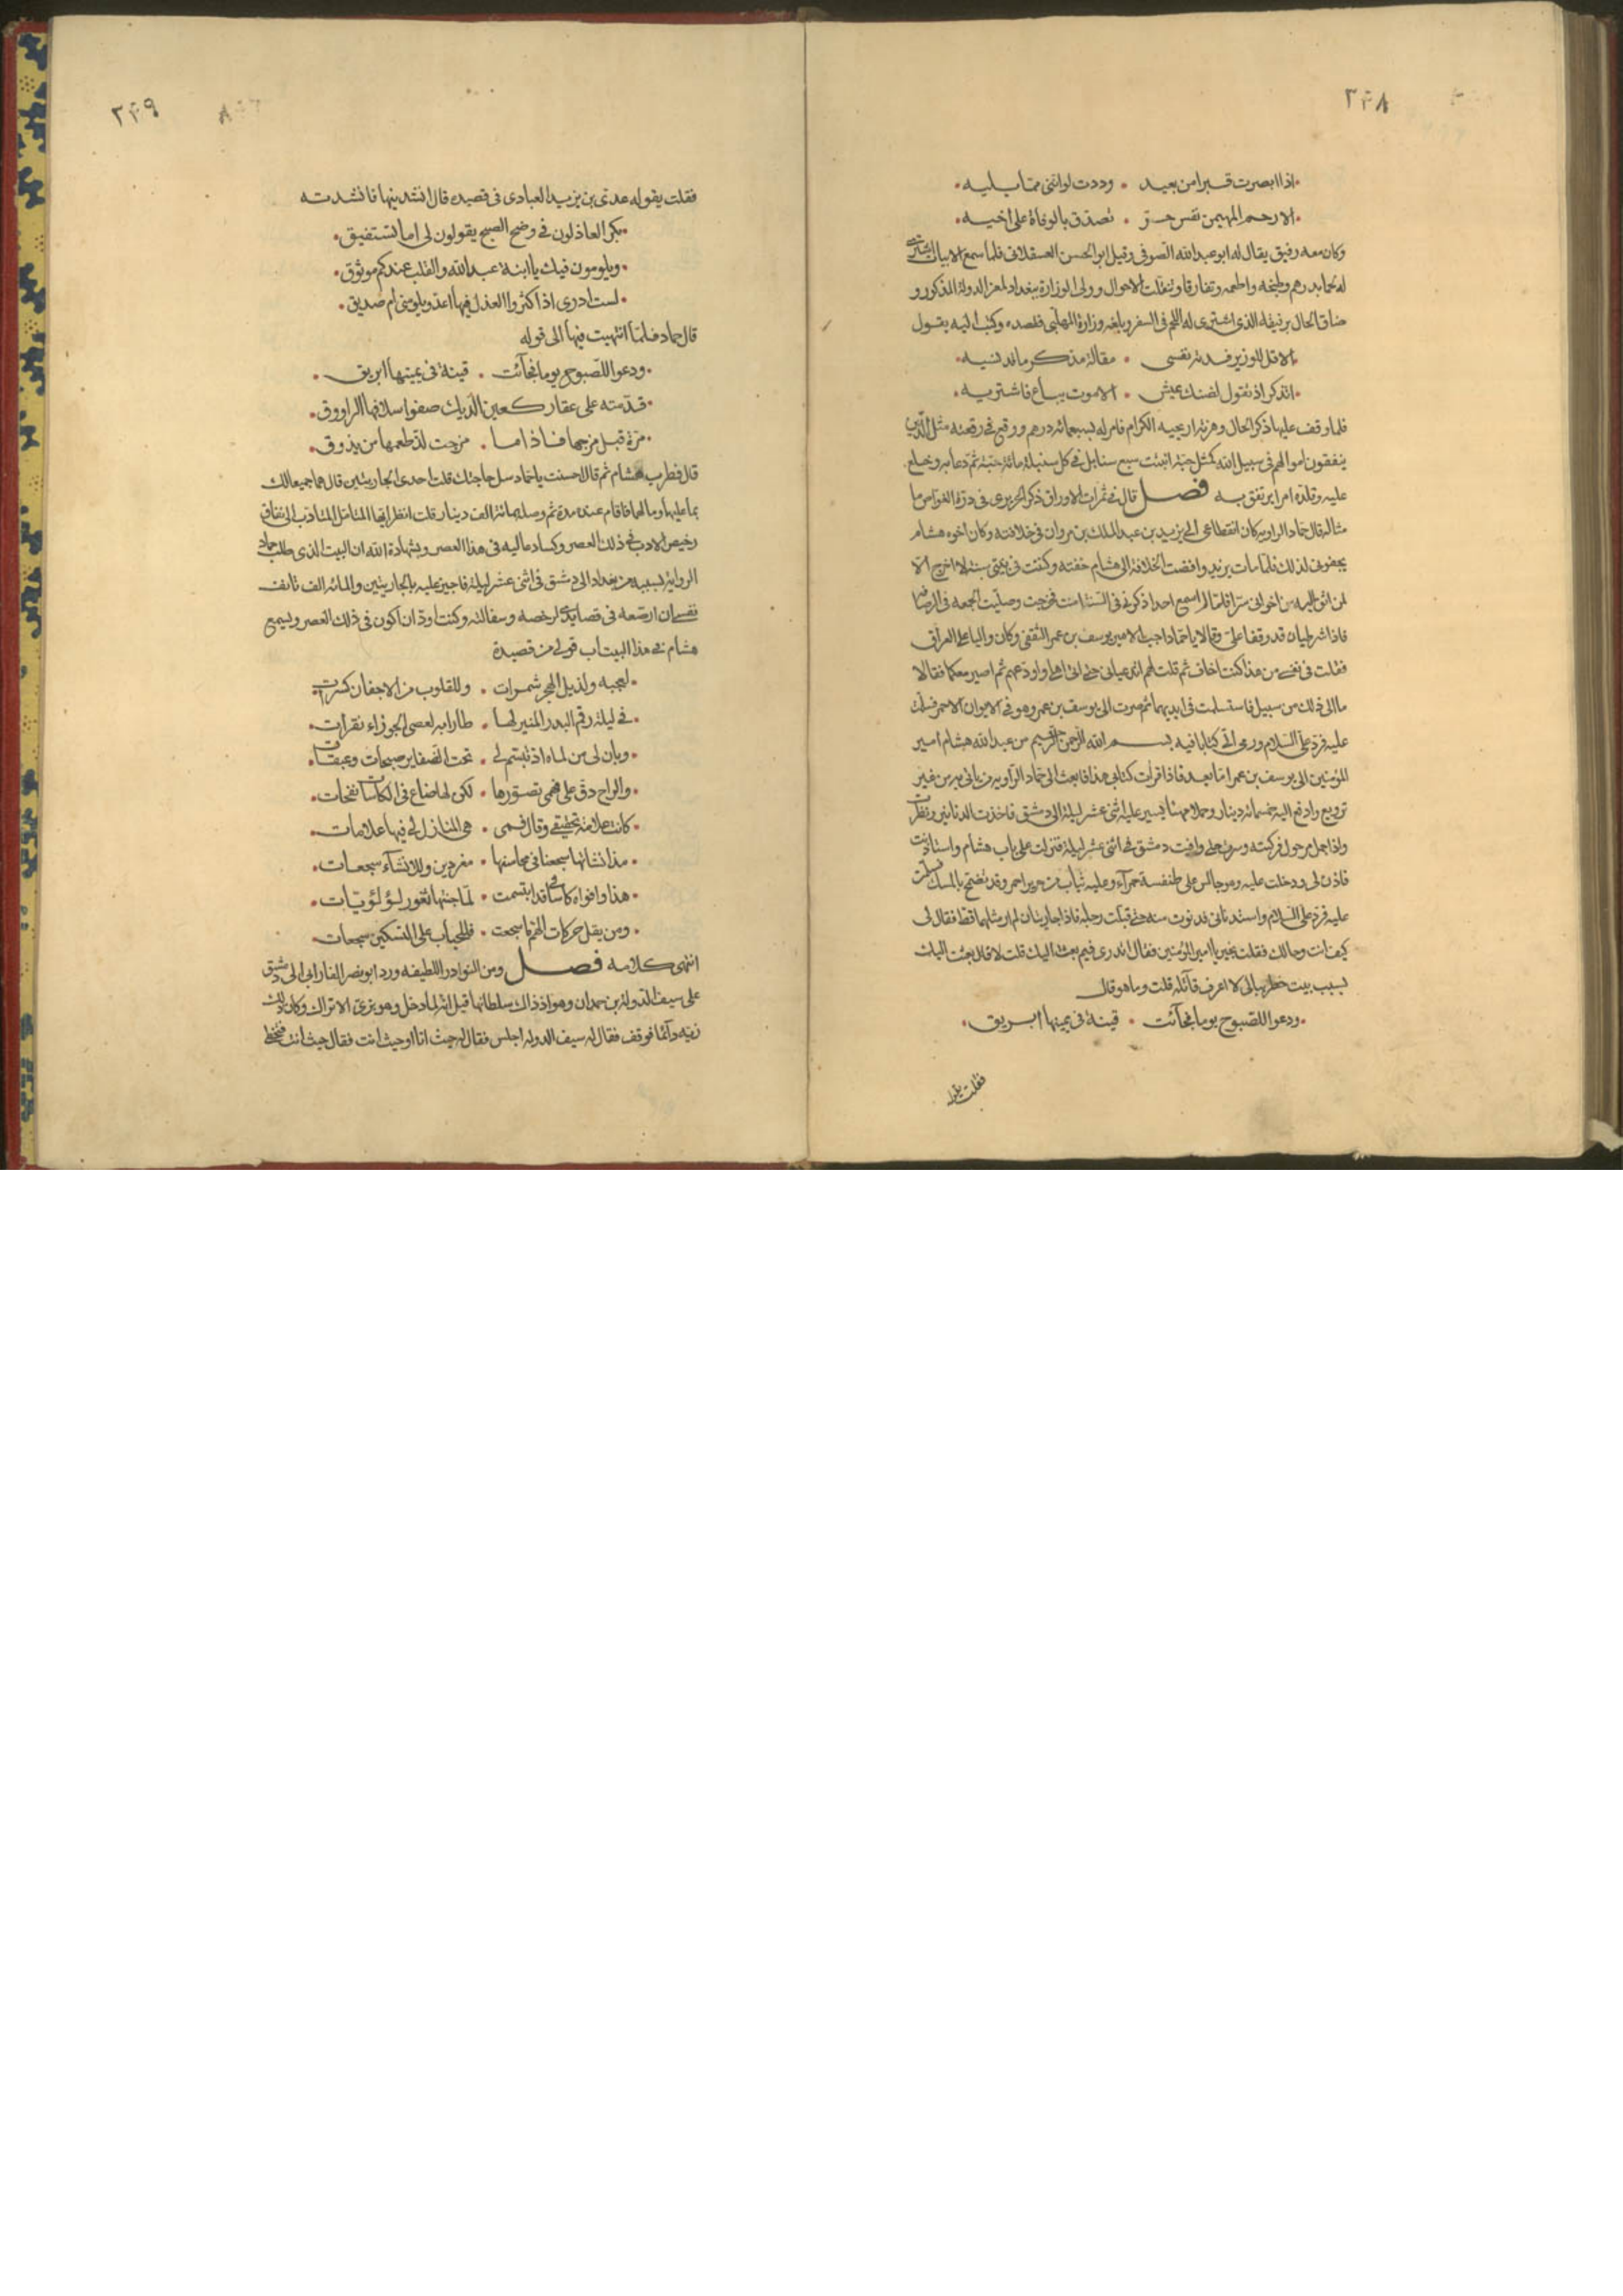 ٢٤٨
اذا ابصرت قبرا من بعيد • وددت لوانني مما يليه
الا رحم المهيمن نفس حر • تصدق بالوفاة على اخيه
وكان معه رفيق يقال له ابو عبد الله الصوفي وقيل ابو الحسن العسقلاني فلما سمع الابيات اشترى
له لحما بدرهم وطبخه واطعمه وتفارقا وتنقلت الاحوال وولى الوزارة ببغداد لمعز الدولة المذكور و
ضاق الحال برفيقه الذى اشترى له اللحم في السفر وبلغه وزارة المهلبى فقصده وكتب اليه يقول
الا قل للوزير فدته نفسى • مقالة مذكر ما قد نسيه
اتذكر اذ تقول لضنك عيش • الا موت يباع فاشتريه
فلما وقف عليها ذكر الحال وهزته اريحية الكرام فامر له بسبعمائة درهم ووقع في رقعته مثل الذين
ينفقون اموالهم في سبيل الله كمثل حبة انبتت سبع سنابل في كل سنبلة مائة حبة ثم دعا به وخلع
عليه وقلده امرا يرتفق به فصل قال في ثمرات الاوراق ذكر الحريرى في درة الغواص ما
مثاله قال حماد الراويه كان انقطاعى الى يزيد بن عبد الملك بن مروان في خلافته وكان اخوه هشام
يجفونى لذلك فلما مات يزيد وافضت الخلافة الى هشام خفته وكنت في بيتى سنة لا اخرج الا
لمن اثق اليه من اخوانى سرا فلما لم اسمع احدا ذكرنى في السنة امنت فخرجت وصليت الجمعه في الرصافه
فاذا شرطيان قد وقفا علي وقالا يا حماد اجب الامير يوسف بن عمر الثقفى وكان واليا على العراق
فقلت في نفسى من هذا كنت اخاف ثم قلت لهم اتدعيانى حتى اتى اهلى واودعهم ثم اصير معكما فقالا
ما الى ذلك من سبيل فاستسلمت في ايديهما ثم صرت الى يوسف بن عمر وهو في الايوان الاحمر فسلمت
عليه فرد علي السلام ورمى الي كتابا فيه بسم الله الرحمن الرحيم من عبد الله هشام امير
المؤمنين الى يوسف بن عمر اما بعد فاذا قرأت كتابى هذا فابعث الى حماد الراويه من ياتى به من غير
ترويع وادفع اليه خمسمائة دينار وجملا مهريا يسير عليه اثنى عشر ليلة الى دمشق فاخذت الدنانير ونظرت
واذا جمل مرحول فركبته وسرت حتى وافيت دمشق في اثنى عشر ليلة فنزلت على باب هشام واستاذنت
فاذن لى ودخلت عليه وهو جالس على طنفسة حمرآء وعليه ثياب من حرير احمر وقد تضمخ بالمسك فسلمت
عليه فرد علي السلام واستدنانى فدنوت منه حتى قبلت رجله فاذا جاريتان لم ار مثلهما قط فقال لى
كيف انت وحالك فقلت بخير يا امير المؤمنين فقال اتدرى فيم بعثت اليك قلت لا قال بعثت اليك
بسبب بيت خطر ببالى لا اعرف قآئله قلت وما هو قال
ودعوا للصبوح يوما فجآئت • قينة في يمينها ابريق
فقلت يقوله
٢٤٩
فقلت يقوله عدى بن يزيد العبادى في قصيده قال انشدينها فانشدته
بكر العاذلون في وضح الصبح يقولون لى اما تستفيق
ويلومون فيك يا ابنة عبد الله والقلب عندكم موثوق
لست ادرى اذ اكثروا العذل فيها اعدو يلومنى ام صديق
قال حماد فلما انتهيت فيها الى قوله
ودعوا للصبوح يوما فجآئت • قينة في يمينها ابريق
قدمته على عقار كعين الديك صفوا سلافها الراووق
مزة قبل مزجها فاذا ما • مزجت لذ طعمها من يذوق
قال فطرب هشام ثم قال احسنت يا حماد سل حاجتك قلت احدى الجاريتين قال هما جميعا لك
بما عليهما وما لهما فاقام عنده مدة ثم وصله بمائة الف دينار قلت انظر ايها المتامل المتادب الى نفاق
رخيص الادب في ذلك العصر وكساد عاليه في هذا العصر وبشهادة الله ان البيت الذى طلب حماد
الراوية بسببه من بغداد الى دمشق في اثنى عشر ليلة فاجيز عليه بالجاريتين والمائه الف تانف
نفسى ان ارصعه في قصايدى لرخصه وسفالته وكنت اود ان اكون في ذلك العصر ويسمع
هشام في هذا البيتاب قولى من قصيدة
لعجبه ولذيل الهجر شمرات • وللقلوب من الاجفان كسرات
في ليلة رقم البدر المنير لها • طارا به لعصى الجوزاء نقرات
وبان لى من لماه اذ تبسم لى • تحت الضفاير صبحات وعبقات
والراح دق على فهمى تصورها • لكن لها ضاع في الكاسات نفحات
كانت علامة تحقيقى وقال فمى • هى المنازل لى فيها علامات
مذ انشاتها سجعنا فى محاسنها • مغردين وللانشآء سجعات
هذا وافواه كاساتى قد ابتسمت • لما جنتها ثغور لؤلؤيات
ومن يقل حركات الهم ما سجعت • فللحباب على التسكين سجعات
انتهى كلامه فصل ومن النوادر اللطيفه ورد ابو نصر الفارابى الى دمشق
على سيف الدولة بن حمدان وهو اذ ذاك سلطانها قيل انه لما دخل وهو بزي الاتراك وكان ذلك
زيه دآئما فوقف فقال له سيف الدولة اجلس فقال له حيث انا او حيث انت فقال حيث انت فتخطى